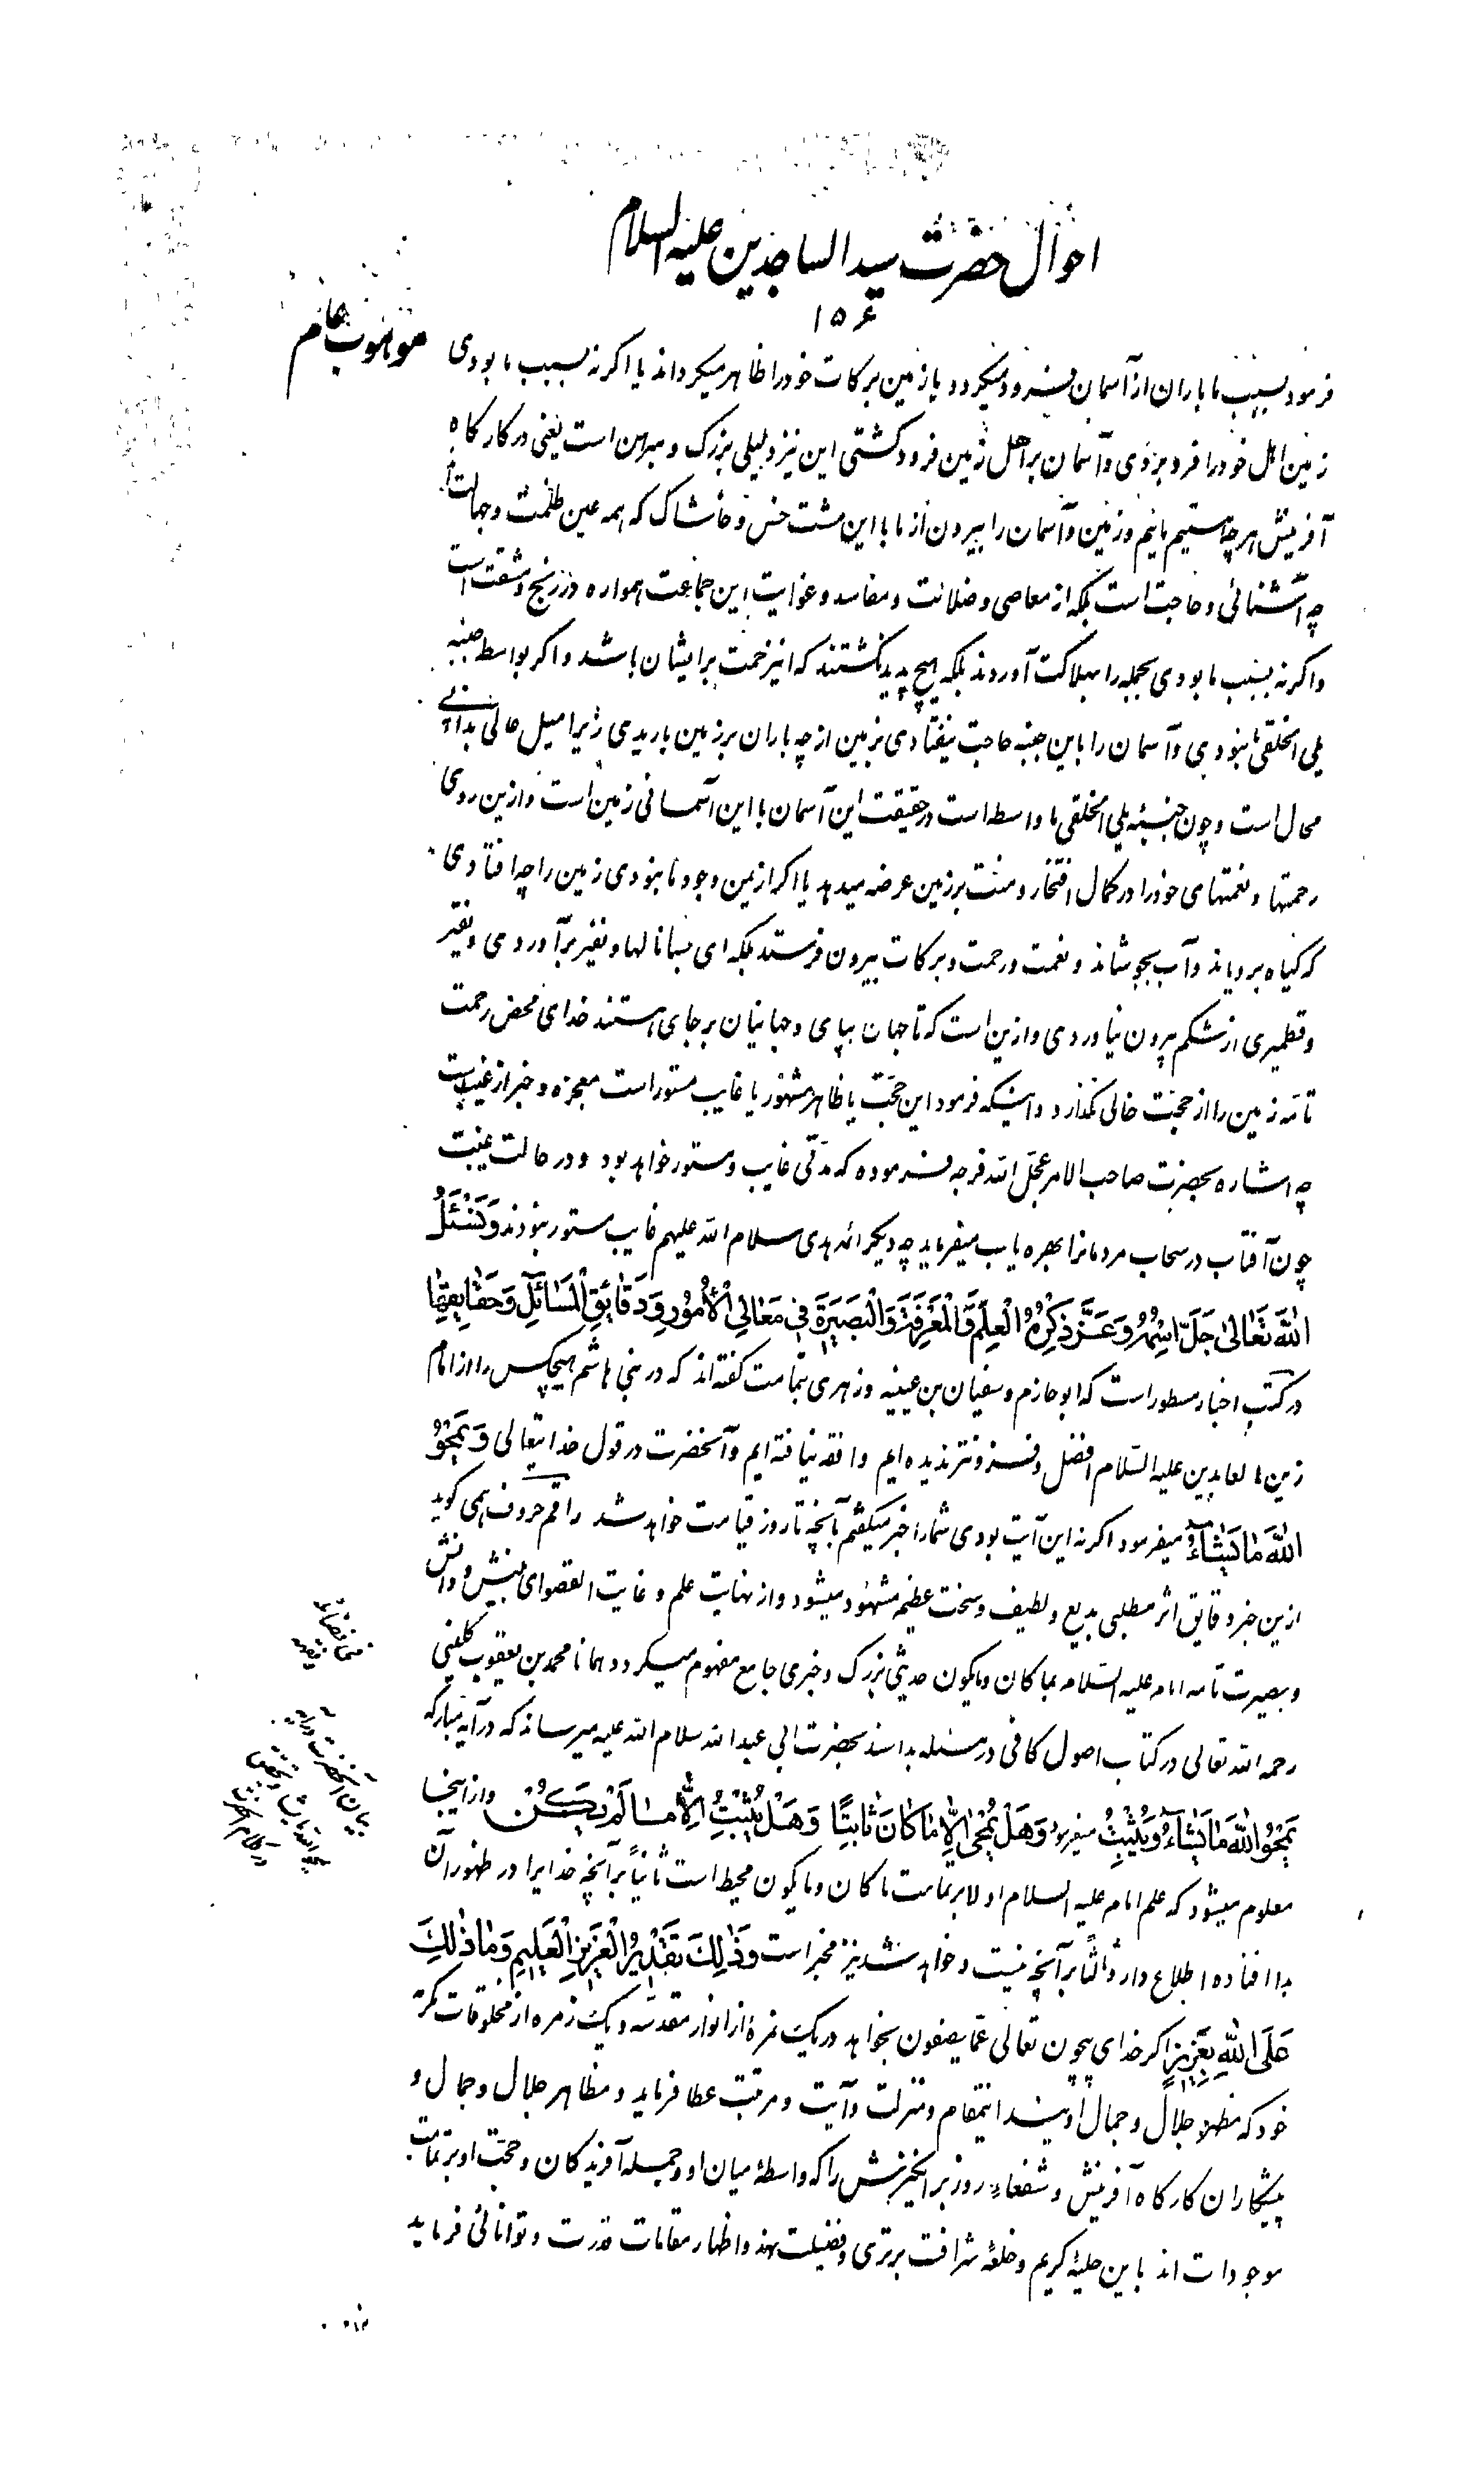 احوال حضرت سید الساجدین علیه السلام
۱۵۶
فرمود بسبب ما باران از آسمان فرود میکردد یا زمین برکات خود را ظاهر میکرداند یا اکر نه بسبب ما بودی
زمین اهل خود را فرو بردی و آسمان بر اهل زمین فرود کشتی این نیز دلیلی بزرک و مبرهن است یعنی در کارکاه
آفرینش هر چه هستیم مائیم و زمین و آسمان را بیرون از ما با این مشت خس و خاشاک که همه عین ظلمت و جهالت
چه آشنائی و حاجت است بلکه از معاصی و ضلالت و مفاسد و غوایت این جماعت همواره در رنج و مشقت است
و اکر نه بسبب ما بودی بجمله را بهلاکت آوردند بلکه هیچ پدید نکشتند که این زحمت بر ایشان باشد و اکر بواسطه جنبه
یلی الخلقی ما نبودی و آسمان را باین جنبه حاجت نیفتادی بزمین از چه باران بر زمین باریدی زیرا میل عالی بدانی
محال است و چون جنبه یلی الخلقی ما واسطه است در حقیقت این آسمان با این آسمانی زمین است و از ین روی
رحمتها و نعمتهای خود را در کمال افتخار و منت بر زمین عرضه میدهد یا اکر از یمن وجود ما نبودی زمین را چه افتادی
که کیاه برویاند و آب بجوشاند و نعمت و رحمت و برکات بیرون فرستد بلکه ای بسا نالها و نفیر برآوردی و نقیر
و قطمیری از شکم بیرون نیاوردی و ازین است که تا جهان بپای و جهانیان برجای هستند خدای محض رحمت
تامه زمین را از حجت خالی نکذارد و اینکه فرمود این حجت یا ظاهر مشهور یا غایب مستور است معجزه و خبر از غیب است
چه اشاره بحضرت صاحب الامر عجل الله فرجه فرموده که مدتی غایب و مستور خواهد بود و در حالت غیبت
چون آفتاب در سحاب مردمانرا بهره یاب میفرماید چه دیکر ائمه هدی سلام الله علیهم غایب مستور نبودند وَنَسْئَلُ
اللهَ تَعَالىٰ جَلَّ اسْمُهُ وَعَزَّ ذِكْرُهُ الْعِلْمَ وَالْمَعْرِفَةَ وَالْبَصِيرَةَ فِي مَعَالِي الْأُمُورِ وَدَقَائِقِ الْمَسَائِلِ وَحَقَايِقِهَا
در کتب اخبار مسطور است که ابو حازم و سفیان بن عیینه و زهری بتمامت کفته اند که در بنی هاشم هیچکس را از امام
زین العابدین علیه السلام افضل و فزونتر ندیده ایم و افقه نیافته ایم و آنحضرت در قول خدایتعالی وَيَمْحُو
اللهُ مَا يَشَاءُ میفرمود اکر نه این آیت بودی شما را خبر میکفتم بآنچه تا روز قیامت خواهد شد راقم حروف همی کوید
از ین خبر دقایق اثر مطلبی بدیع و لطیف و سخت عظیم مشهود میشود و از نهایت علم و غایت القصوای بینش و دانش
و بصیرت تامه امام علیه السلام بما کان و مایکون حدیثی بزرک و خبری جامع مفهوم میکردد همانا محمد بن یعقوب کلینی
رحمه الله تعالی در کتاب اصول کافی در مسئله بدا سند بحضرت ابی عبد الله سلام الله علیه میرساند که در آیه مبارکه
يَمْحُوا اللهُ مَا يَشَاءُ وَيُثْبِتُ میفرمود وَهَلْ يُمْحَى إِلَّا مَا كَانَ ثَابِتًا وَهَلْ يُثْبَتُ إِلَّا مَا لَمْ يَكُنْ و از اینجا
معلوم میشود که علم امام علیه السلام اولا بر تمامت ما کان و ما یکون محیط است ثانیاً بر آنچه خدایرا در ظهور آن
بدا افتاده اطلاع دارد ثالثاً بر آنچه نیست و خواهد شد نیز مخبر است وَذٰلِكَ تَقْدِيرُ الْعَزِيزِ الْعَلِيمِ وَمَا ذٰلِكَ
عَلَى اللهِ بِعَزِيزٍ اکر خدای بیچون تعالی عما یصفون بخواهد در یک نمره از انوار مقدسه و یک زمره از مخلوقات مکرمه
خود که مظهر جلال و جمال اویند اینمقام و منزلت و آیت و مرتبت عطا فرماید و مظاهر جلال و جمال و
پیشکاران کارکاه آفرینش و شفعاء روز برانکیزش را که واسطهٔ میان او و جمله آفریدکان و حجت او بر تمامت
موجودات اند باین حلیهٔ کریم و خلعهٔ شرافت برتری و فضیلت نهد و اظهار مقامات قدرت و توانائی فرماید
بیان آنحضرت